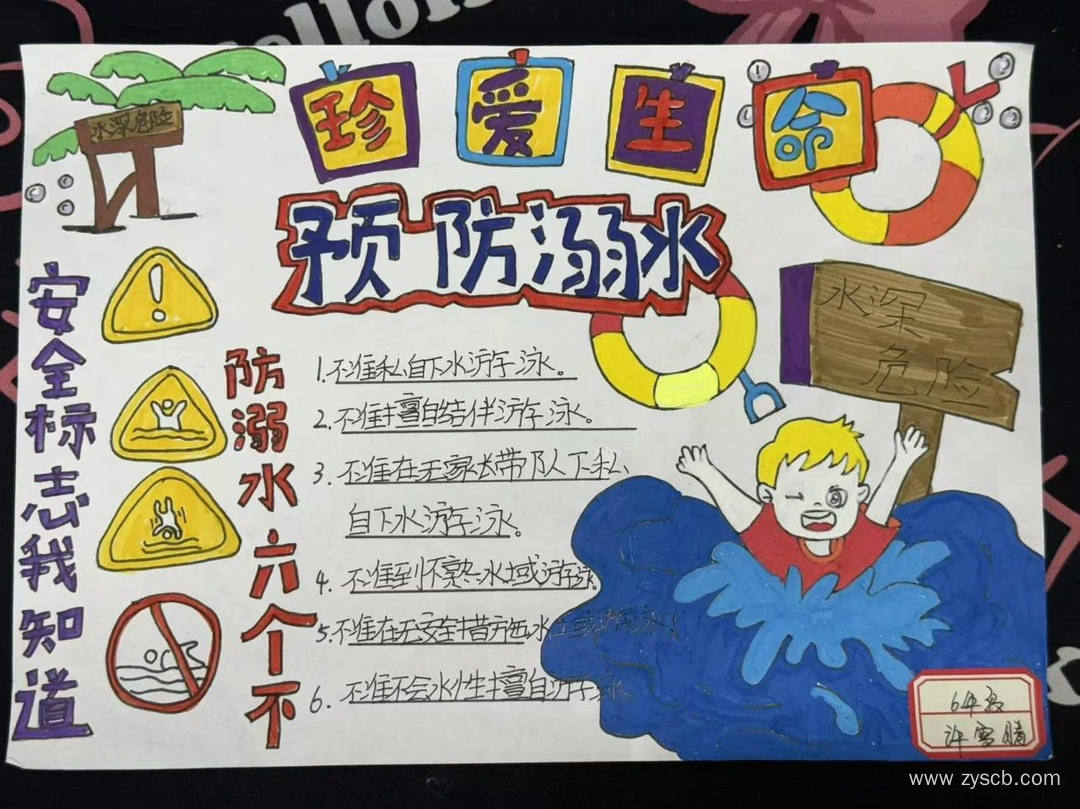 水深危险
珍爱生命
预防溺水
水深
危险
安全标志我知道
防溺水六个不
1.不准私自下水游泳。
2.不准擅自结伴游泳。
3.不准在无家长带队下私
自下水游泳。
4.不准到怀熟水域游泳。
5.不准在无安全措方西水域游泳
6.不准不会水性擅自游泳
6年级
许雪晴
www.zyscb.com